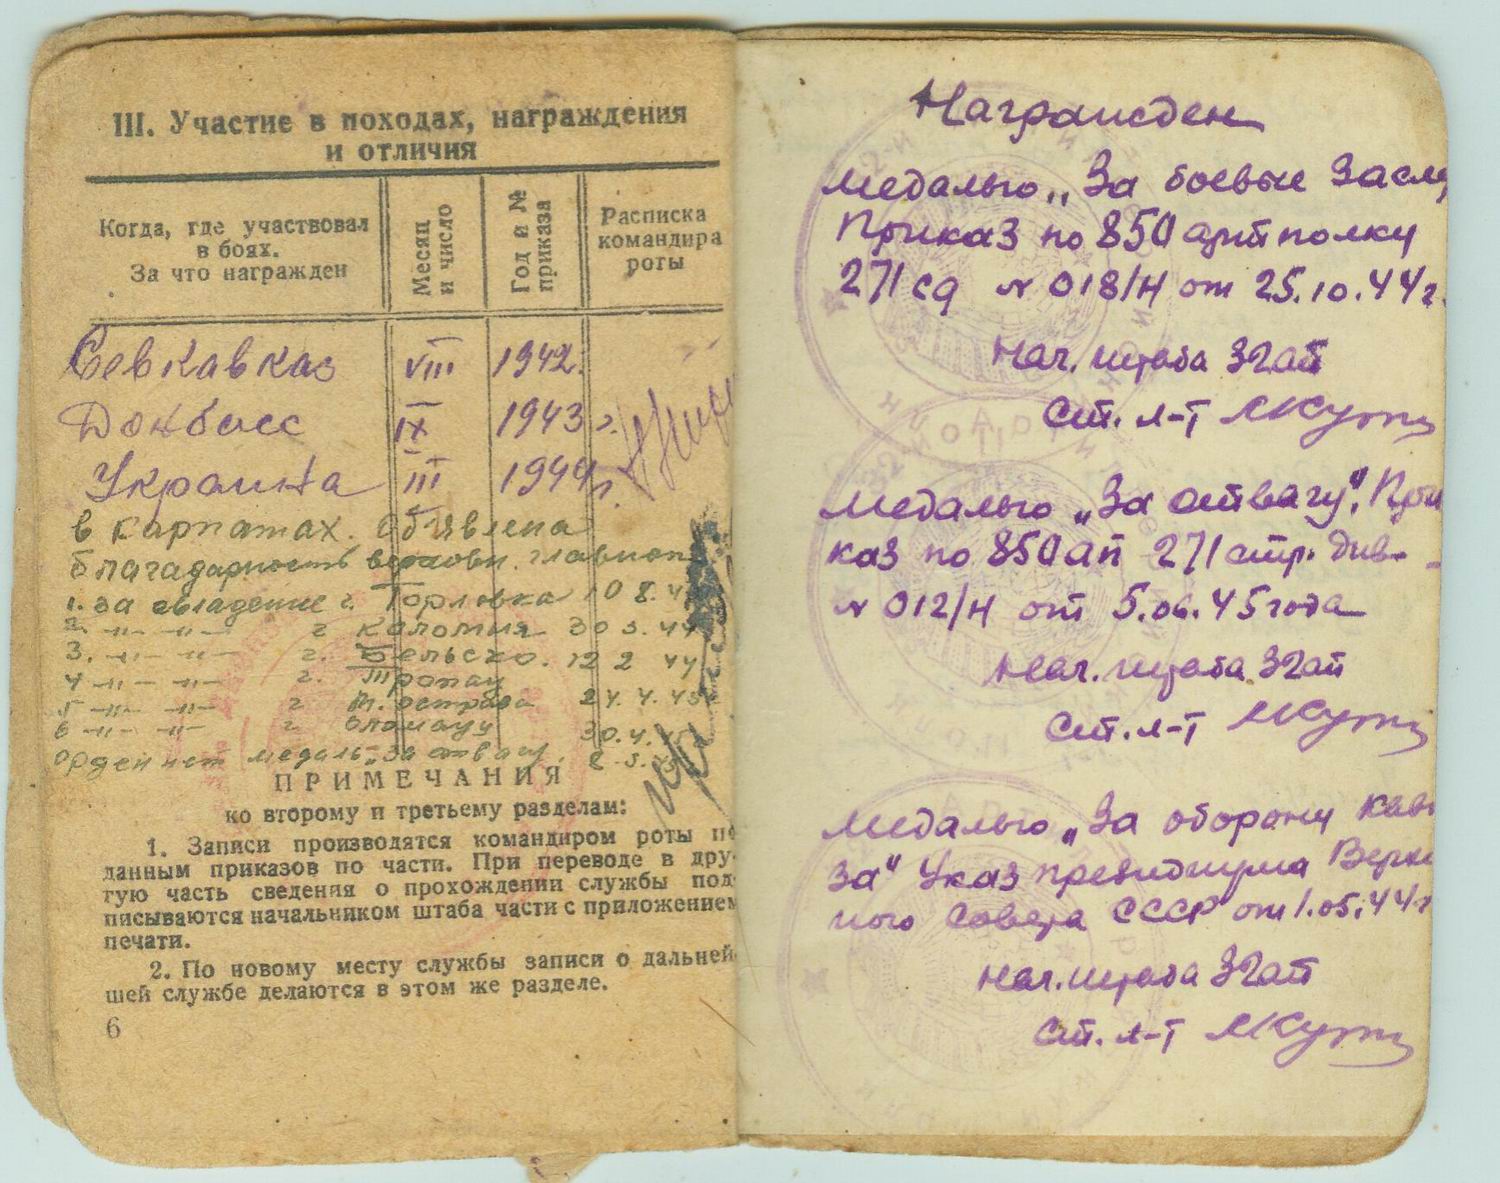 III. Участие в походах, награждения
и отличия
Когда, где участвовал
в боях.
За что награжден
Месяц
и число
Год и №
приказа
Расписка
командира
роты
Севкавказ VIII 1942.
Донбасс IX 1943 г.
Украина III 1944 г.
в карпатах. Объявлена
благадарность верховн. главноп
1. за овладение г. Горловка 10 8. 4
2 -"- -"- г. Коломия 30 3. 44
3. -"- -"- г. Бельско. 12 2 44
4 -"- -"- г. Тропау
5 -"- -"- г. М. острава 24. 4. 45
6 -"- -"- г. Оломоуц 30. 4.
медаль „За отвагу. 2. 3.
ПРИМЕЧАНИЯ
ко второму и третьему разделам:
1. Записи производятся командиром роты по
данным приказов по части. При переводе в дру-
гую часть сведения о прохождении службы под-
писываются начальником штаба части с приложением
печати.
2. По новому месту службы записи о дальней-
шей службе делаются в этом же разделе.
6
Награжден
медалью „За боевые Заслу
Приказ по 850 арт полку
271 сд № 018/Н от 25.10.44г.
Нач. штаба 32ап
Ст. л-т
медалью „За отвагу". При
каз по 850 ап 271 стр. див-
№ 012/Н от 5.06.45 года
Нач. штаба 32ап
Ст. л-т
медалью „За оборону Кавк
за" Указ президиума Верхо
ного Совета СССР от 1.05.44г
Нач. штаба 32ап
Ст. л-т